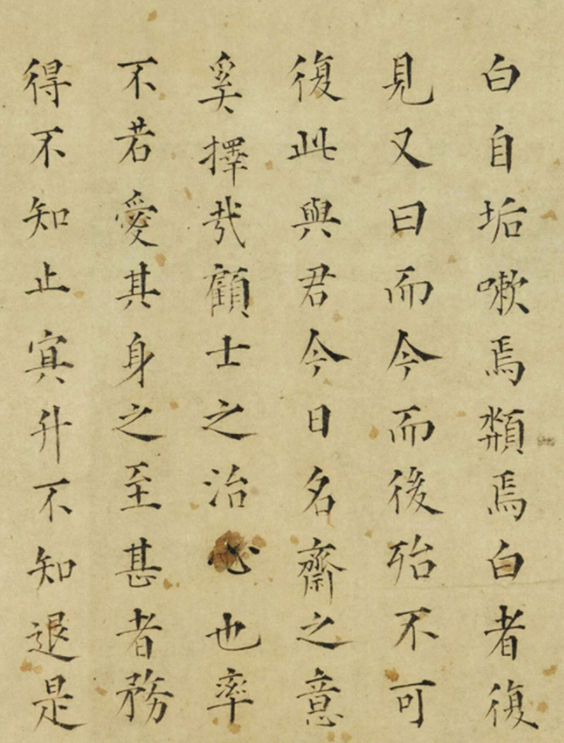 白自垢嗽焉纇焉白者復
見又曰而今而後殆不可
復此與君今日名齋之意
奚擇哉顧士之治心也率
不若愛其身之至甚者務
得不知止㝠升不知退是